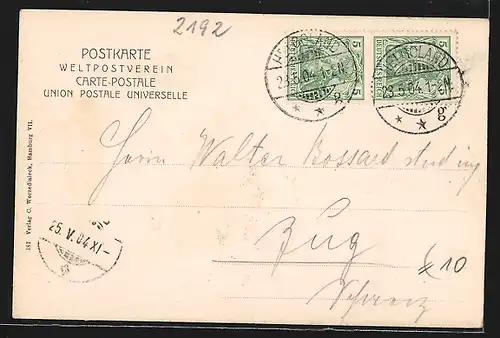 2192
POSTKARTE
WELTPOSTVEREIN
CARTE-POSTALE
UNION POSTALE UNIVERSELLE
5 5
HELGOLAND
23.5.04.1-2N.
* * g
HELGOLAND
23.5.04.1-2N.
* * g
Herrn Walter Bossard stud ing
Zug
Schweiz
10
25.V.04.XI-
187 Verlag C. Worzedialeck, Hamburg VII.